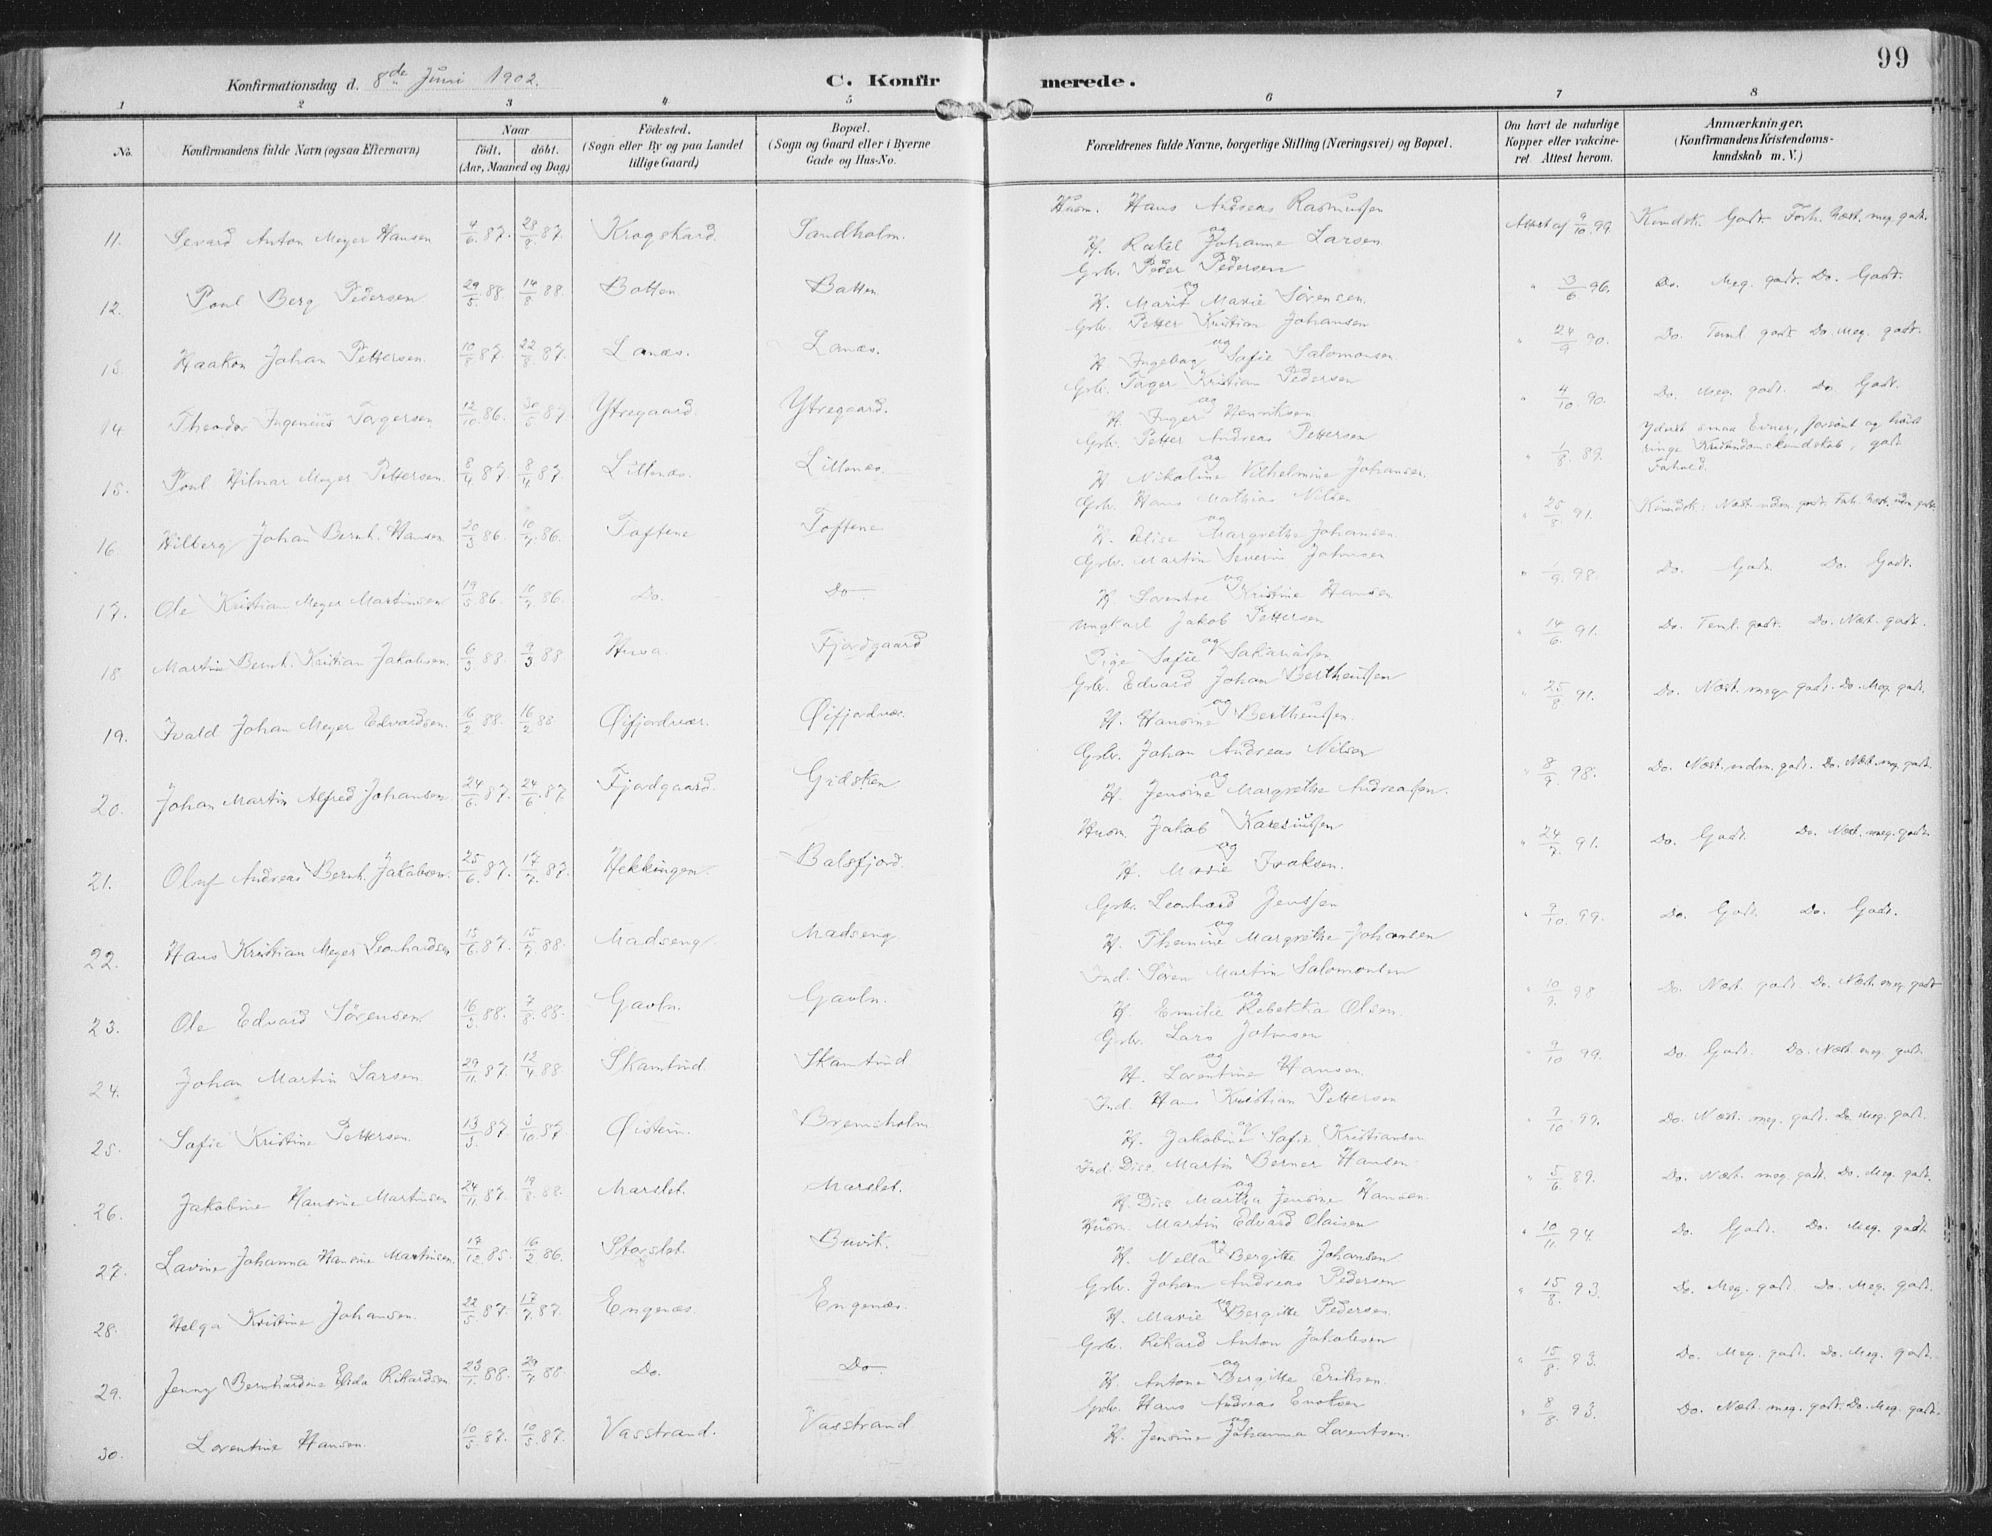 99
Konfirmationsdag d. 8de Juni 1902. C. Konfirmerede.
1 2 3 4 5 6 7 8
No. Konfirmandens fulde Navn (ogsaa Efternavn) Naar født. døbt. (Aar, Maaned og Dag) Fødested. (Sogn eller By og paa Landet tillige Gaard) Bopæl. (Sogn og Gaard eller i Byerne Gade og Hus-No. Forældrenes fulde Navne, borgerlige Stilling (Næringsvei) og Bopæl. Om havt de naturlige Kopper eller vakcineret Attest herom. Anmærkninger. (Konfirmandens Kristendomskundskab m. V.)
Husm. Hans Andreas Rasmussen
11. Sevard Anton Meyer Hansen 4/6 87. 28/8 87. Krogskard. Sandholm. og H. Rakel Johanne Larsen Attest af 9/10 99. Kundsk. Godt Forh. Næst. meg. godt.
Grbr. Peder Pedersen
12. Poul Berg Pedersen 29/5 88. 14/8 88. Botten Batten og H. Marit Marie Sørensen. " 3/6 96. Do. Meg. godt. Do. Godt.
Grbr. Petter Kristian Johansen
13. Haakon Johan Pettersen. 22/8 87. Lanæs. Lanæs. og H. Ingeborg Sofie Salomonsen. " 24/9 90. Do. Teml. godt Do. Meg. godt.
Grbr. Torger Kristian Pedersen
14. Theodor Ingenius Torgersen 12/10 86. 30/5 87. Ytregaard. Ytregaard. og H. Inger Henriksen. " 4/10 90. Do. Meg. godt. Do. Godt.
Grbr. Petter Andreas Pettersen
15. Poul Hilmar Meyer Pettersen. 8/4 87. 8/4 87. Littenæs. Littenæs. og H. Nikoline Vilhelmine Johansen. " 1/8 89. Yderst smaa Evner, forsømt og høist ringe Kristendomskundskab, godt Forhold.
Grbr. Hans Mathias Nilsen
16. Hilberg Johan Bernh. Hansen 20/3 86. 10/7 86. Toftene Toftene og H. Elise Margrethe Johansen. " 25/8 91. Kundsk. Næst. uden godt. Forh. Næst. uden godt.
Grbr. Martin Severin Johnsen
17. Ole Kristian Meyer Martinsen 19/5 86. 10/7 86. Do. Do og H. Lorentse Kristine Hansen " 1/9 98. Do. Godt. Do. Godt.
Ungkarl Jakob Pettersen
18. Martin Bernh. Kristian Jakobsen. 6/3 88. 9/3 88 Fjordgaard og Pige Sofie Sakariassen " 14/6 91. Do. Teml. godt. Do. Næst. godt.
Grbr. Edvard Johan Bertheussen
19. Ivald Johan Meyer Edvardsen. 16/2 88. 16/2 88 Øifjordvær. Øifjordvær. og H. Hansine Bertheussen. " 25/8 91. Do. Næst. meg. godt. Do. Meg. godt.
Grbr. Johan Andreas Nilsen
20. Johan Martin Alfred Johansen. 24/6 87. 24/6 87. Fjordgaard. Gridsken og H. Jensine Margrethe Andreassen. " 8/7 98. Do. Næst. uden. godt. Do. Næst. meg. godt.
Husm. Jakob Karesiussen
21. Oluf Andreas Bernh. Jakobsen. 25/6 87. 17/7 87. Hekkingen. Balsfjord. og H. Marie Isaksen. " 24/7 91. Do. Godt. Do. Næst. meg. godt.
Grbr. Leonhard Jenssen
22. Hans Kristian Meyer Leonhardsen 15/6 87. 15/7 88. Madseng. Madseng og H. Thamine Margrethe Johansen " 9/10 99. Do. Godt. Do. Godt.
Ind. Søren Martin Salomonsen
23. Ole Edvard Sørensen. 16/3 88. 7/8 88. Gavln. Gavln. og H. Emilie Rebekka Olsen. " 10/9 98 Do. Næst godt. Do. Næst. meg. godt
Grbr. Lars Johnsen
24. Johan Martin Larsen 29/11 87. 12/4 88 Skamtind Skamtind og H. Lorentine Hansen. " 9/10 99. Do. Godt. Do. Næst. meg. godt.
Ind. Hans Kristian Pettersen
25. Sofie Kristine Pettersen. 13/3 87. 3/10 87. Øistein. Bremsholm H. Jakobine Sofie Kristiansen " 9/10 99. Do. Næst. meg. godt. Do. Meg. godt.
Ind. Diss. Martin Berner Hansen
26. Jakobine Hansine Martinsen 24/11 87. 19/8 88. Marslet. Marslet. og H. Diss. Martha Jensine Hansen. " 5/6 89. Do. Næst meg. godt. Do. Meg. godt.
Husm. Martin Edvard Olaisen
27. Lavine Johanna Hansine Martinsen. 17/12 85. 16/2 86. Storslet. Buvik. og H. Nella Bergitte Johansen " 10/11 94. Do. Godt. Do. Meg. godt.
Grbr. Johan Andreas Pedersen
28. Helga Kristine Johansen. 22/5 87. 17/7 87. Engenæs. Engenæs. og H. Marie Bergitte Pedersen. " 15/8 93. Do. Meg. godt. Do. Meg. godt.
Grbr. Rikard Anton Jakobsen
29. Jenny Bernhardine Elida Rikardsen 23/1 88. 29/7 88. Do. Do og H. Antone Bergitte Eriksen. " 15/8 93. Do. Meg. godt. Do. Meg. godt.
Grbr. Hans Andreas Enoksen
30. Lorentine Hansen. 10/5 87. 10/5 87. Vasstrand. Vasstrand og H. Jensine Johanna Lorentsen. " 8/8 93. Do. Næst. meg. godt. Do. Meg. godt.